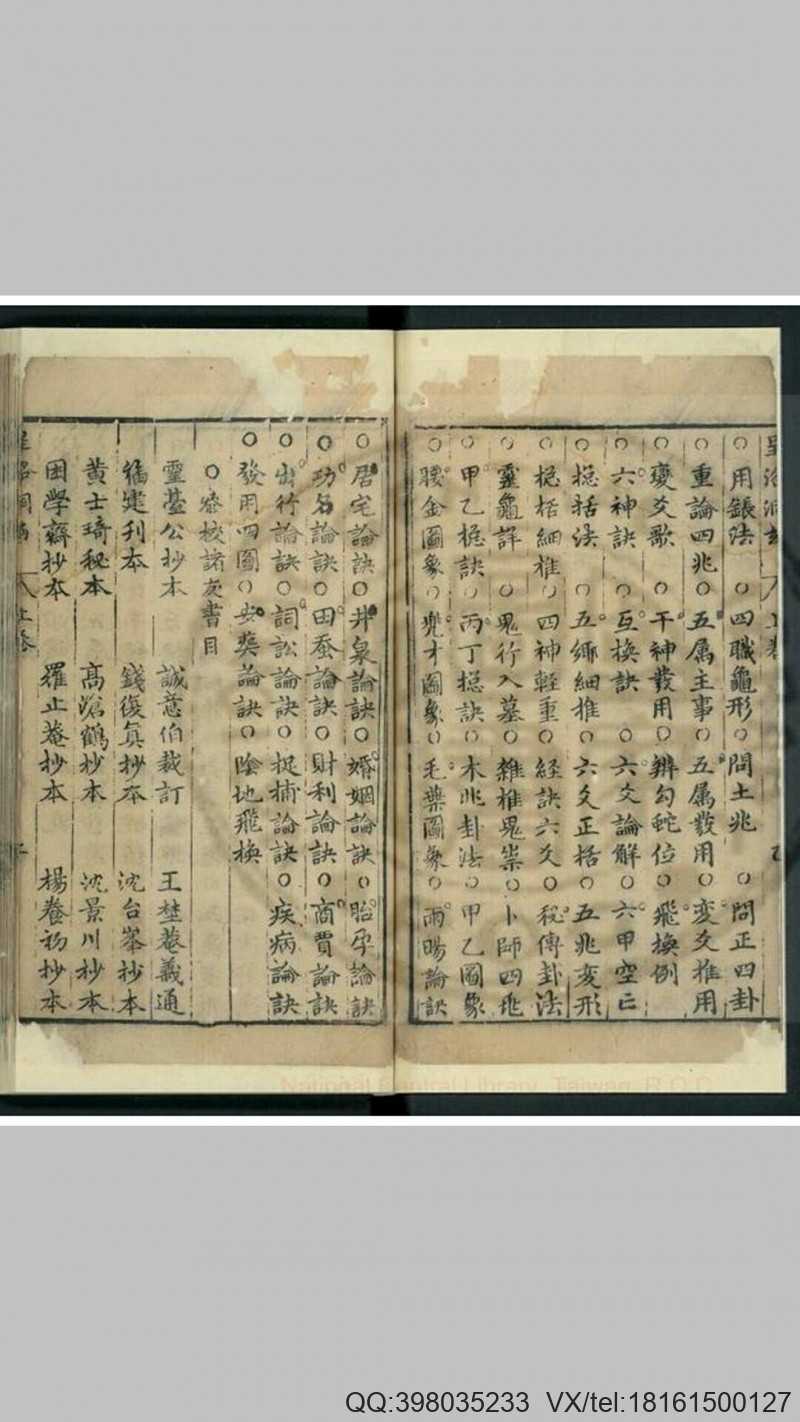 ○用鋘法○四職龜形○問土兆○問正四卦
○重論四兆○五属主事○五属發用○变爻推用
○变爻歌○干神發用○辨勾蛇位○飛換例
○六神訣○互換訣○六爻論解○六甲空亡
○揔括法○五鄉細推○六爻正括○五兆变形
揔括細推○四神軽重○経訣六爻○秘傳卦法
○靈龜詳○鬼行入墓○雜推鬼祟○卜師四
○甲乙揔訣○丙丁揔訣○木兆卦法○甲乙圖象
○腰金圖象○兜才圖象○毛葉圖象○雨暘論訣
○居宅論訣○井泉論訣○婚姻論訣○胎孕論訣
○功名論訣○田蚕論訣○財利論訣○商賈論訣
○出行論訣○詞訟論訣○捉捕論訣○疾病論訣
○發用四圖○安塟論訣○陰地飛換
○叅校諸友書目
靈䑓公抄本 誠意伯裁訂 王埜菴義通
福建刊本 錢復真抄本 沈台峯抄本
黄士琦秘本 髙滄鶴抄本 沈景川抄本
困學齋抄本 羅止菴抄本 楊養初抄本
National Central Library, Taiwan, R.O.C
QQ:398035233 VX/tel:18161500127